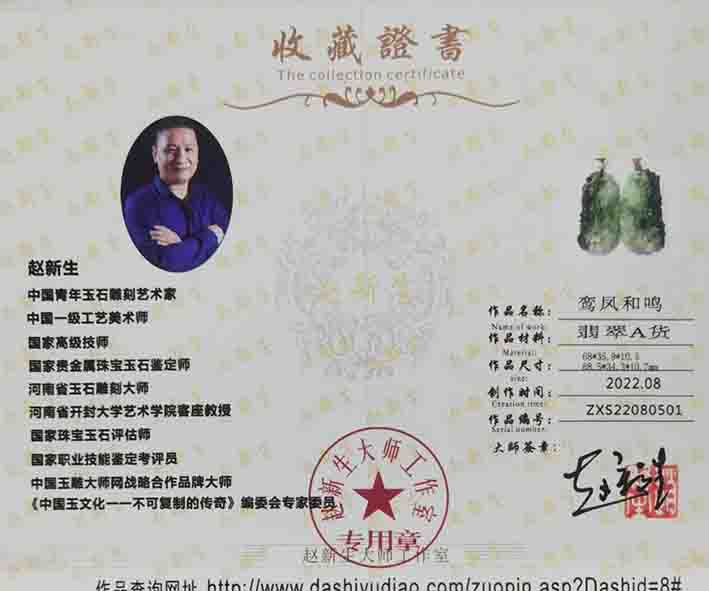 收藏證書
The collection certificate
赵新生
中国青年玉石雕刻艺术家
中国一级工艺美术师
国家高级技师
国家贵金属珠宝玉石鉴定师
河南省玉石雕刻大师
河南省开封大学艺术学院客座教授
国家珠宝玉石评估师
国家职业技能鉴定考评员
中国玉雕大师网战略合作品牌大师
《中国玉文化一一不可复制的传奇》编委会专家委员
作品名称： 鸾凤和鸣
Name of work:
作品材料： 翡翠A货
Material:
作品尺寸： 68*35.9*10.5
size: 68.5*34.3*10.7mm
创作时间： 2022.08
Creation time:
作品编号： ZXS22080501
Serial number:
大师签章：
赵新生
赵新生大师工作室
专用章
赵新生大师工作室
作品查询网址 http://www.dashiyudiao.com/zuopin.asp?Dashid=8#